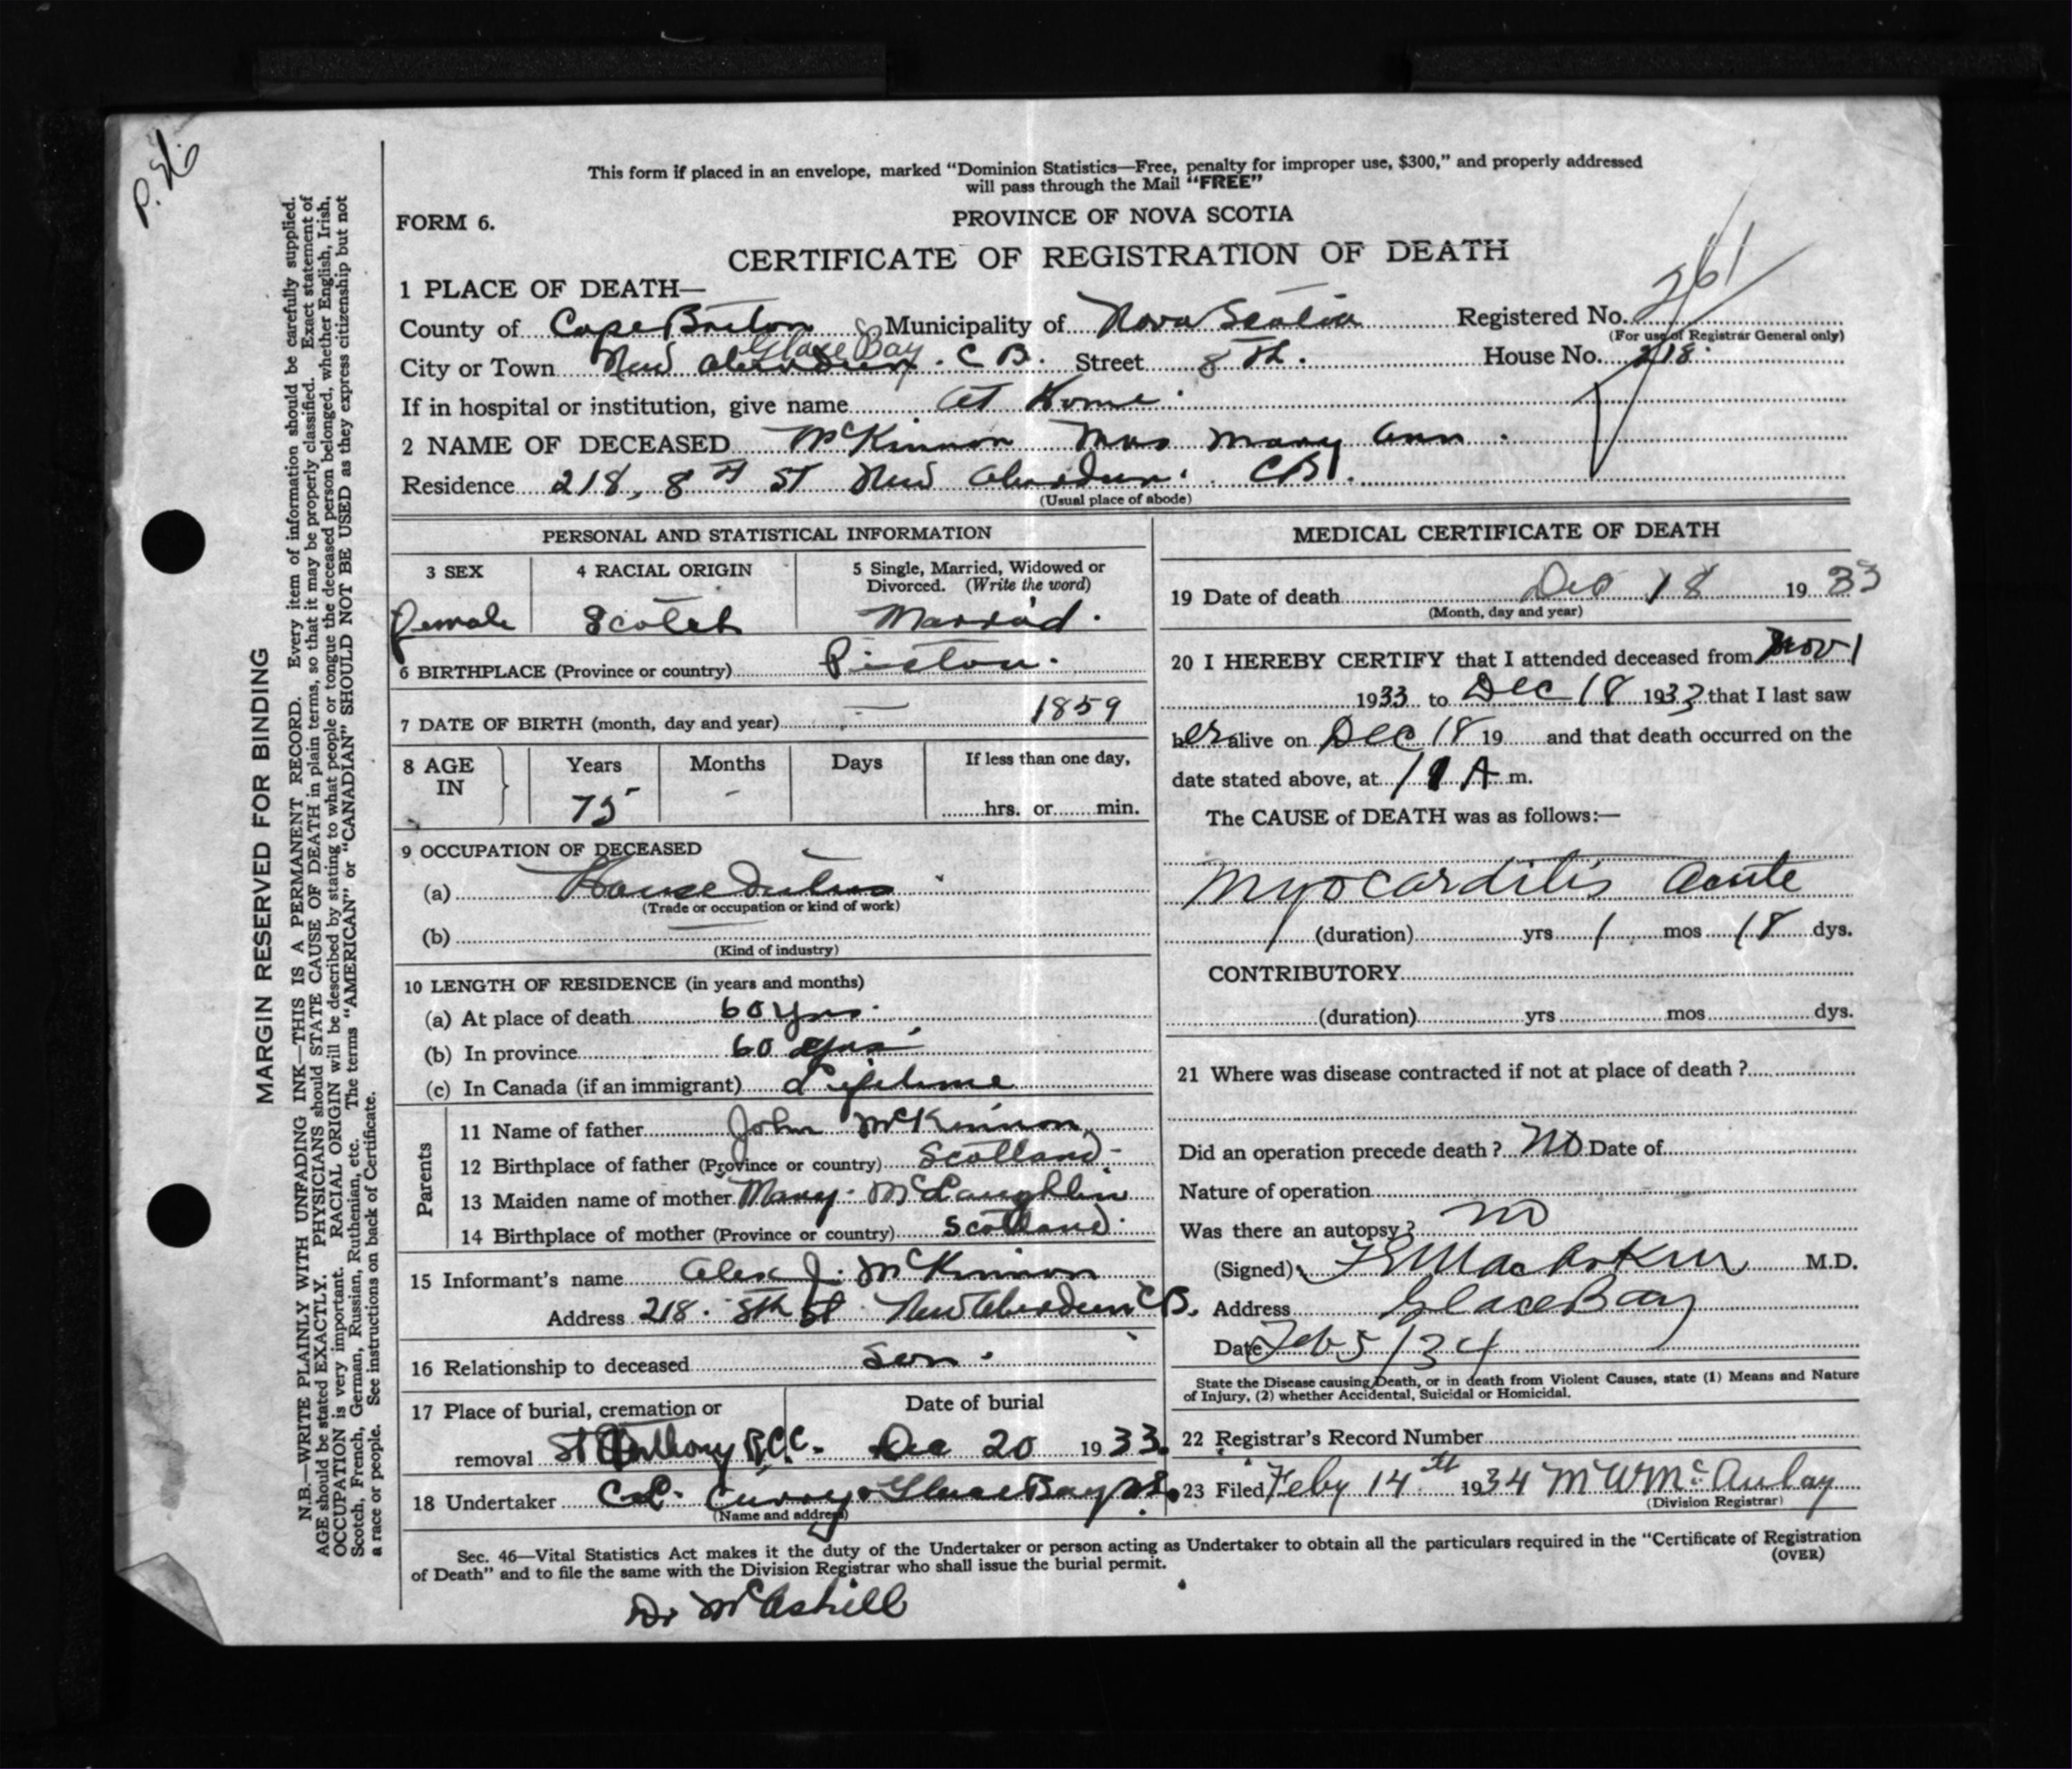 P.S.
This form if placed in an envelope, marked “Dominion Statistics—Free, penalty for improper use, $300,” and properly addressed
will pass through the Mail “FREE”
FORM 6.
PROVINCE OF NOVA SCOTIA
CERTIFICATE OF REGISTRATION OF DEATH
261
1 PLACE OF DEATH—
County of Cape Breton Municipality of Nova Scotia Registered No.
(For use of Registrar General only)
Glace Bay
City or Town New Aberdeen. C B. Street 8 Th. House No. 218.
If in hospital or institution, give name At Home.
2 NAME OF DECEASED McKinnon Mrs Mary Ann.
Residence 218, 8th St New Aberdeen. CB.
(Usual place of abode)
PERSONAL AND STATISTICAL INFORMATION
3 SEX 4 RACIAL ORIGIN 5 Single, Married, Widowed or
Divorced. (Write the word)
female Scotch Married.
6 BIRTHPLACE (Province or country)
7 DATE OF BIRTH (month, day and year) — 1859
8 AGE IN Years Months Days If less than one day,
75 - hrs. or min.
9 OCCUPATION OF DECEASED
(a) House Duties
(Trade or occupation or kind of work)
(b)
(Kind of industry)
10 LENGTH OF RESIDENCE (in years and months)
(a) At place of death 60 yrs.
(b) In province 60 yrs
(c) In Canada (if an immigrant) Lifetime
Parents
11 Name of father John McKinnon
12 Birthplace of father (Province or country) Scotland-
13 Maiden name of mother Mary. McLaughlin
14 Birthplace of mother (Province or country) Scotland.
15 Informant's name Alex J. McKinnon
Address 218. 8th St New Aberdeen CB.
16 Relationship to deceased Son.
17 Place of burial, cremation or Date of burial
removal St Anthony R.C.C. Dec 20 1933.
18 Undertaker Curry Glace Bay
(Name and address)
MEDICAL CERTIFICATE OF DEATH
19 Date of death Dec 18 1933
(Month, day and year)
20 I HEREBY CERTIFY that I attended deceased from Nov 1
1933 to Dec 18 1933 that I last saw
her alive on Dec 18 19 and that death occurred on the
date stated above, at 11 A m.
The CAUSE of DEATH was as follows:—
Myocarditis Acute
(duration) yrs 1 mos 18 dys.
CONTRIBUTORY
(duration) yrs mos dys.
21 Where was disease contracted if not at place of death ?
Did an operation precede death ? No Date of
Nature of operation
Was there an autopsy ? No
(Signed) M.D.
Address Glace Bay
Date Feb 5/34
State the Disease causing Death, or in death from Violent Causes, state (1) Means and Nature
of Injury, (2) whether Accidental, Suicidal or Homicidal.
22 Registrar's Record Number
23 Filed Feby 14th 1934 M W McAulay
(Division Registrar)
Sec. 46—Vital Statistics Act makes it the duty of the Undertaker or person acting as Undertaker to obtain all the particulars required in the “Certificate of Registration
of Death” and to file the same with the Division Registrar who shall issue the burial permit.
(OVER)
Dr McAskill
MARGIN RESERVED FOR BINDING
N.B.—WRITE PLAINLY WITH UNFADING INK—THIS IS A PERMANENT RECORD. Every item of information should be carefully supplied.
AGE should be stated EXACTLY. PHYSICIANS should STATE CAUSE OF DEATH in plain terms, so that it may be properly classified. Exact statement of
OCCUPATION is very important. RACIAL ORIGIN will be described by stating to what people or tongue the deceased person belonged, whether English, Irish,
Scotch, French, German, Russian, Ruthenian, etc. The terms “AMERICAN” or “CANADIAN” SHOULD NOT BE USED as they express citizenship but not
a race or people. See instructions on back of Certificate.